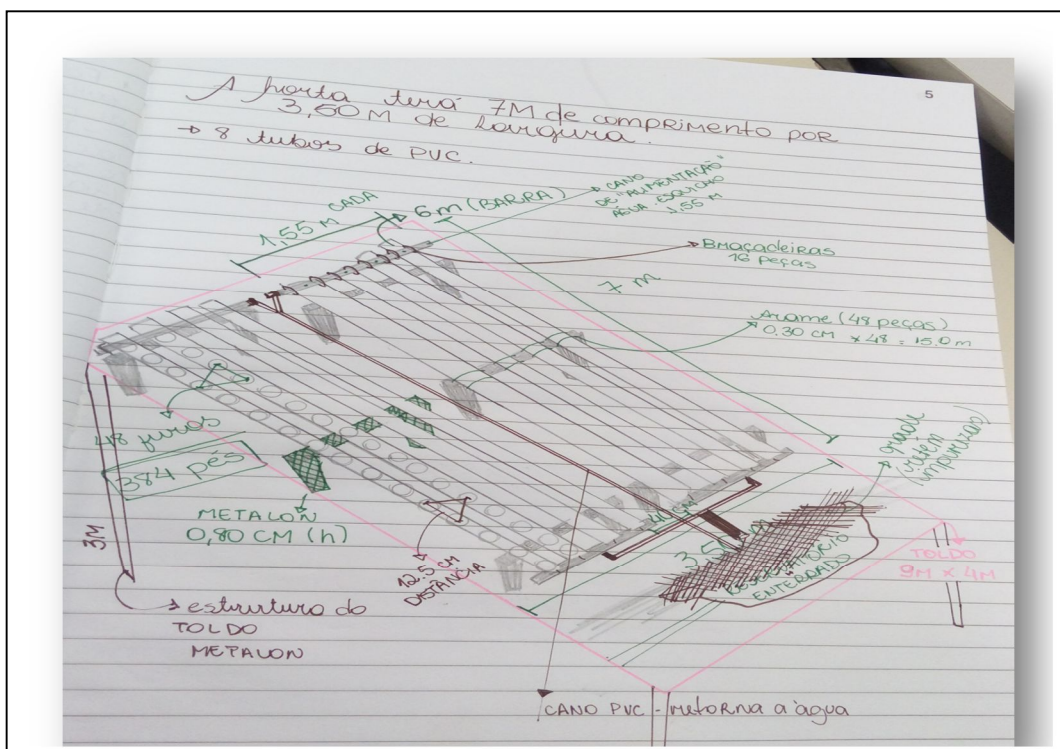 5
A horta terá 7M de comprimento por
3,50 M de largura.
→ 8 tubos de PVC.
1,55 M CADA
6m (BARRA)
CANO
DE "ALIMENTAÇÃO"
ÁGUA
1,55 M
Braçadeiras
16 peças
7 m
Arame (48 peças)
0.30 CM x 48 = 15.0 m
48 furos
384 pés
METALON
0,80 CM (h)
3M
12.5 CM
DISTÂNCIA
grade
(retém
impurezas)
3.5
RESERVATÓRIO
ENTERRADO
TOLDO
9M X 4M
estrutura do
TOLDO
METALON
CANO PVC - retorna a água